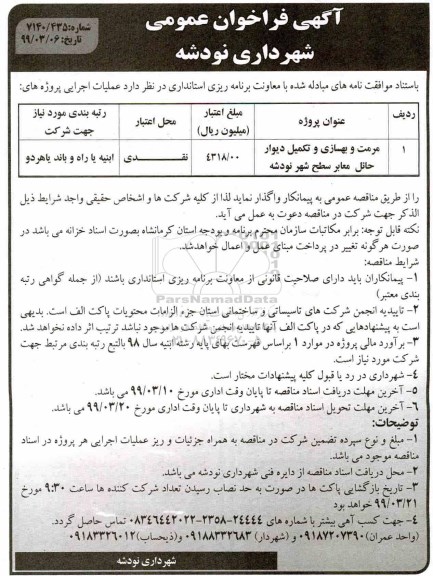 آگهی فراخوان عمومی
شهرداری نودشه
شماره: ۷۱۴۰/۴۳۵
تاریخ: ۹۹/۰۳/۰۶
باستناد موافقت نامه های مبادله شده با معاونت برنامه ریزی استانداری در نظر دارد عملیات اجرایی پروژه های:
ردیف
عنوان پروژه
مبلغ اعتبار (میلیون ریال)
محل اعتبار
رتبه بندی مورد نیاز جهت شرکت
۱
مرمت و بهسازی و تکمیل دیوار حائل معابر سطح شهر نودشه
۴۳۱۸/۰۰
نقدی
ابنیه یا راه و باند یاهردو
را از طریق مناقصه عمومی به پیمانکار واگذار نماید لذا از کلیه شرکت ها و اشخاص حقیقی واجد شرایط ذیل
الذکر جهت شرکت در مناقصه دعوت به عمل می آید.
نکته قابل توجه: برابر مکاتبات سازمان محترم برنامه و بودجه استان کرمانشاه بصورت اسناد خزانه می باشد در
صورت هرگونه تغییر در پرداخت مبنای عمل و اعمال خواهد شد.
شرایط مناقصه:
۱- پیمانکاران باید دارای صلاحیت قانونی از معاونت برنامه ریزی استانداری باشند (از جمله گواهی رتبه
بندی معتبر)
۲- تاییدیه انجمن شرکت های تاسیساتی و ساختمانی استان جزء الزامات محتویات پاکت الف است. بدیهی
است به پیشنهادهایی که در پاکت الف آنها تاییدیه انجمن شرکت ها موجود نباشد ترتیب اثر داده نخواهد شد.
۳- برآورد مالی پروژه در موارد ۱ براساس فهرست بهای پایه رشته ابنیه سال ۹۸ بالتبع رتبه بندی مرتبط جهت
شرکت مورد نیاز است.
۴- شهرداری در رد یا قبول کلیه پیشنهادات مختار است.
۵- آخرین مهلت دریافت اسناد مناقصه تا پایان وقت اداری مورخ ۹۹/۰۳/۱۰ می باشد.
۶- آخرین مهلت تحویل اسناد مناقصه به شهرداری تا پایان وقت اداری مورخ ۹۹/۰۳/۲۰ می باشد.
توضیحات:
۱- مبلغ و نوع سپرده تضمین شرکت در مناقصه به همراه جزئیات و ریز عملیات اجرایی هر پروژه در اسناد
مناقصه موجود می باشد.
۲- محل دریافت اسناد مناقصه از دایره فنی شهرداری نودشه می باشد.
۳- تاریخ بازگشایی پاکت ها در صورت به حد نصاب رسیدن تعداد شرکت کننده ها ساعت ۹:۳۰ مورخ
۹۹/۰۳/۲۱ خواهد بود
۴- جهت کسب آگهی بیشتر با شماره های ۲۴۴۴۴-۲۳۵۸-۰۸۳۴۶۴۴۲۰۲۲ تماس حاصل گردد.
(واحد عمران) ۰۹۱۸۷۲۰۷۳۹۰ و (شهردار) ۰۹۱۸۸۳۳۲۶۸۳ و (ذیحساب) ۰۹۱۸۳۳۲۶۰۱۲
شهرداری نودشه
ParsNamadData